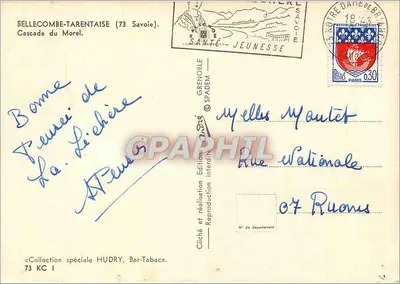 BELLECOMBE-TARENTAISE (73 Savoie).
Cascade du Morel.
SAVOIE
SANTÉ JEUNESSE
73 NOTRE DAME DE BRIANÇON
18-4-5
PARIS
0,30
Bonne
Pensée de
La Léchère
Melles Moutet
Rue Nationale
07 Ruoms
CPAPHIL
Cliché et réalisation Edition André GRENOBLE
Reproduction interdite © SPADEM
N° de département
«Collection spéciale HUDRY, Bar-Tabac».
73 KC 1